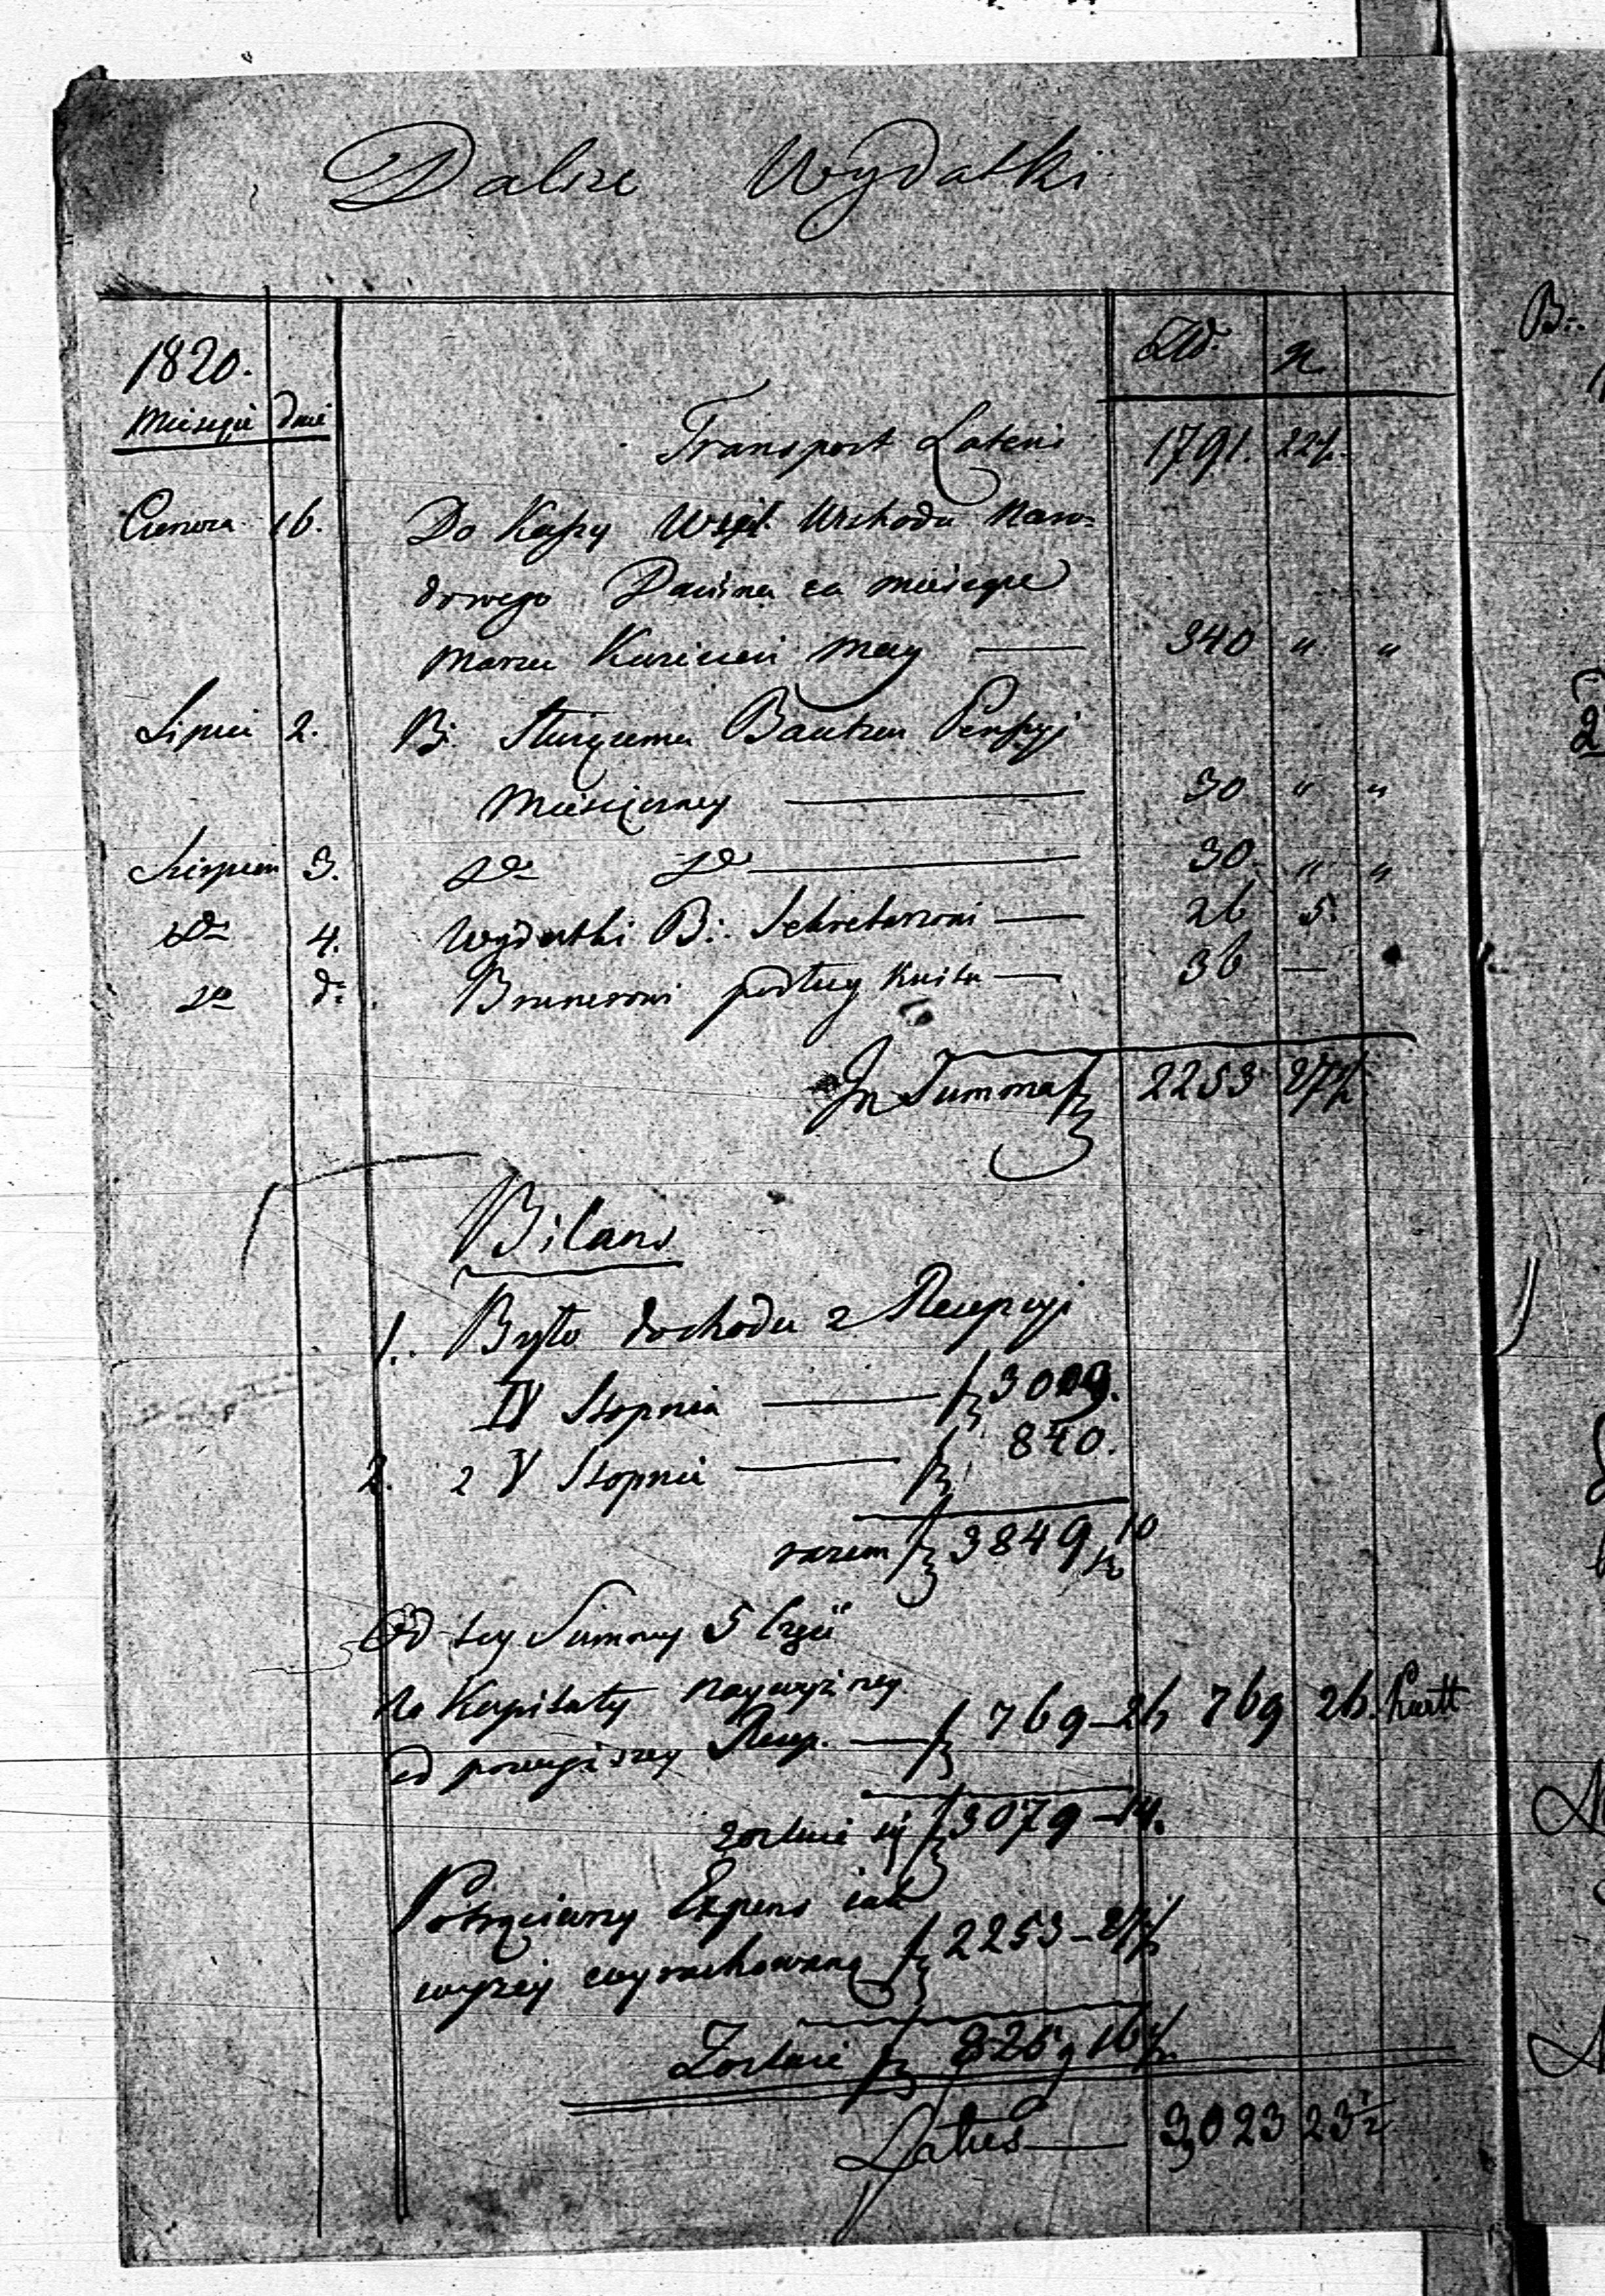 Dalsze Wydatki
1820.
Miesiące dnie Złt. gr.
Transport Lateris 1791. 22½
Czerwca 16. Do Kassy Wsch. Wschodu Naro-
dowego Danina za miesiące
Marzec Kwiecień May — 340 " "
Lipca 2. B: Służącemu Pensyi
Miesięczney — 30 " "
Sierpnia 3. do do — 30 " "
do 4. Wydatki B: Sekretarzowi — 26 5.
do do Brunerowi podług Kwitu — 36 —
In Summa 2253 27½
Bilans
1. Było dochodu z Recepcyi
IV Stopnia — 3009.
2. z V Stopnia — 840.
razem 3849 10
Od tey Summy 5 część
do Kapituły naywyższey
od powyższey Recep. — 769-26 769 26.
zostaie się 3079-14.
Potrąciwszy Expens iak
wyżey wyrachowano 2253-27½
Zostaie 825 16½
Latus — 3,023 23½
B:.